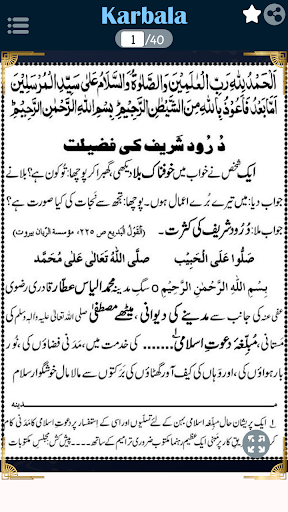 Karbala
1 /40
اَلْحَمْدُ لِلّٰهِ رَبِّ الْعٰلَمِيْنَ وَالصَّلٰوةُ وَالسَّلَامُ عَلٰى سَيِّدِ الْمُرْسَلِيْنَ
اَمَّا بَعْدُ فَاَعُوْذُ بِاللّٰهِ مِنَ الشَّيْطٰنِ الرَّجِيْمِ بِسْمِ اللّٰهِ الرَّحْمٰنِ الرَّحِيْمِ
دُرُود شریف کی فضیلت
ایک شخص نے خواب میں خوفناک بلا دیکھی، گھبرا کر پوچھا: تُو کون ہے؟ بلا نے
جواب دیا: میں تیرے بُرے اعمال ہوں۔ پوچھا: تجھ سے نَجات کی کیا صورت ہے؟
جواب ملا: دُرُود شریف کی کثرت۔ (اَلْقَوْلُ الْبَدِیع ص ۲۲۵، مؤسسة الریان بیروت)
صَلُّوْا عَلَى الْحَبِيْب صَلَّى اللّٰهُ تَعَالٰى عَلٰى مُحَمَّد
بِسْمِ اللّٰهِ الرَّحْمٰنِ الرَّحِيْمِ ○ سگِ مدینہ محمد الیاس عطار قادری رضوی
عفی عنہ کی جانب سے مدینے کی دیوانی، میٹھے مصطفٰے صلی اللہ تعالیٰ علیہ والہ وسلم کی
مُبلِّغۂ دعوتِ اِسلامی ۱؎ ........ کی خدمت میں، مَدَنی فَضاؤں کی، نُور
بار ہواؤں کی، اور وہاں کی کیف آور گھٹاؤں کی بَرَکتوں سے مالا مال خوشگوار سلام
مـــدینہ
۱؎ ایک پریشان حال مبلِّغہ اسلامی بہن کے لئے تسلّیوں اور اسی کے استفسار پر دعوتِ اسلامی کا مَدَنی کام